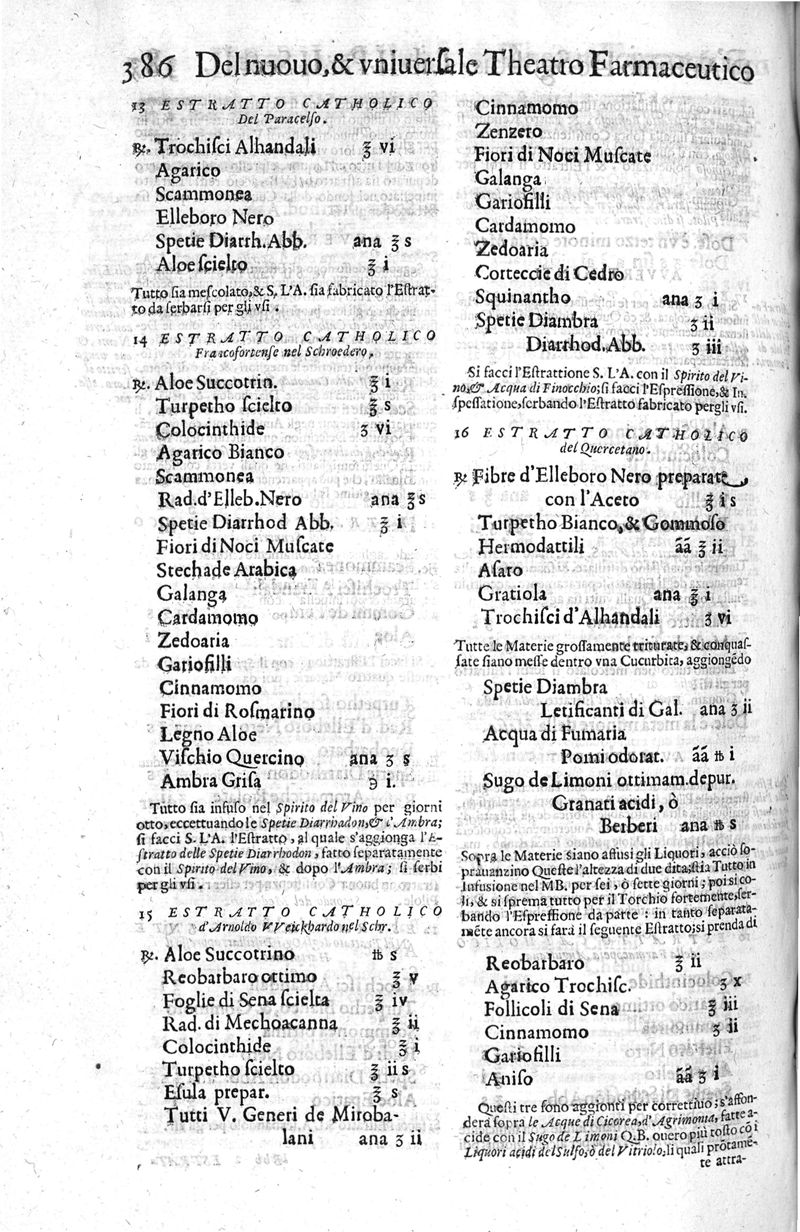 386 Del nuouo, & vniuersale Theatro Farmaceutico
13 ESTRATTO CATHOLICO
Del Paracelso.
℞. Trochisci Alhandali ℥ vi
Agarico
Scammonea
Elleboro Nero
Spetie Diarrh. Abb. ana ℥ s
Aloe scielto ℥ i
Tutto sia mescolato, & S. L'A. sia fabricato l'Estrat-
to da serbarsi per gli vsi.
14 ESTRATTO CATHOLICO
Francofortense nel Schroedero.
℞. Aloe Succotrin. ℥ i
Turpetho scielto ℥ s
Colocinthide ʒ vi
Agarico Bianco
Scammonea
Rad. d'Elleb. Nero ana ℥ s
Spetie Diarrhod Abb. ℥ i
Fiori di Noci Muscate
Stechade Arabica
Galanga
Cardamomo
Zedoaria
Gariofilli
Cinnamomo
Fiori di Rosmarino
Legno Aloe
Vischio Quercino ana ʒ s
Ambra Grisa ℈ i.
Tutto sia infuso nel Spirito del Vino per giorni
otto, eccettuando le Spetie Diarrhadon, & l'Ambra;
si facci S. L'A. l'Estratto, al quale s'aggionga l'E-
stratto delle Spetie Diarrhodon, fatto separatamente
con il Spirito del Vino, & dopo l'Ambra; si serbi
per gli vsi.
15 ESTRATTO CATHOLICO
d'Arnoldo VVeickhardo nel Schr.
℞. Aloe Succotrino ℔ s
Reobarbaro ottimo ℥ v
Foglie di Sena scielta ℥ iv
Rad. di Mechoacanna ℥ ii
Colocinthide ℥ i
Turpetho scielto ℥ ii s
Esula prepar. ℥ s
Tutti V. Generi de Miroba-
lani ana ʒ ii
Cinnamomo
Zenzero
Fiori di Noci Muscate
Galanga
Gariofilli
Cardamomo
Zedoaria
Corteccie di Cedro
Squinantho ana ʒ i
Spetie Diambra ʒ ii
Diarrhod. Abb. ʒ iii
Si facci l'Estrattione S. L'A. con il Spirito del Vi-
no, & Acqua di Finocchio; si facci l'Espressione, & In-
spessatione, serbando l'Estratto fabricato per gli vsi.
16 ESTRATTO CATHOLICO
del Quercetano.
℞ Fibre d'Elleboro Nero preparate
con l'Aceto ℥ i s
Turpetho Bianco, & Gommoso
Hermodattili āā ℥ ii
Asaro
Gratiola ana ℥ i
Trochisci d'Alhandali ʒ vi
Tutte le Materie grossamente triturate, & conquas-
sate siano messe dentro vna Cucurbita, aggiongēdo
Spetie Diambra
Letificanti di Gal. ana ʒ ii
Acqua di Fumaria
Pomi odorat. āā ℔ i
Sugo de Limoni ottimam. depur.
Granati acidi, ò
Berberi ana ℔ s
Sopra le Materie siano affusi gli Liquori, acciò so-
prauanzino Queste l'altezza di due dita; stia Tutto in
Infusione nel MB. per sei, ò sette giorni; poi si co-
li, & si sprema tutto per il Torchio fortemente, ser-
bando l'Espressione da parte: in tanto separata-
mēte ancora si farà il seguente Estratto; si prenda di
Reobarbaro ℥ ii
Agarico Trochisc. ʒ x
Follicoli di Sena ℥ iii
Cinnamomo ʒ ii
Gariofilli
Aniso āā ʒ i
Questi tre sono aggionti per correttiuo; s'affon-
derà sopra le Acque di Cicorea, d'Agrimonia, fatte a-
cide con il Sugo de Limoni Q.B. ouero più tosto cō i
Liquori acidi del Sulfo, ò del Vitriolo, li quali prōtamē-
te attra-